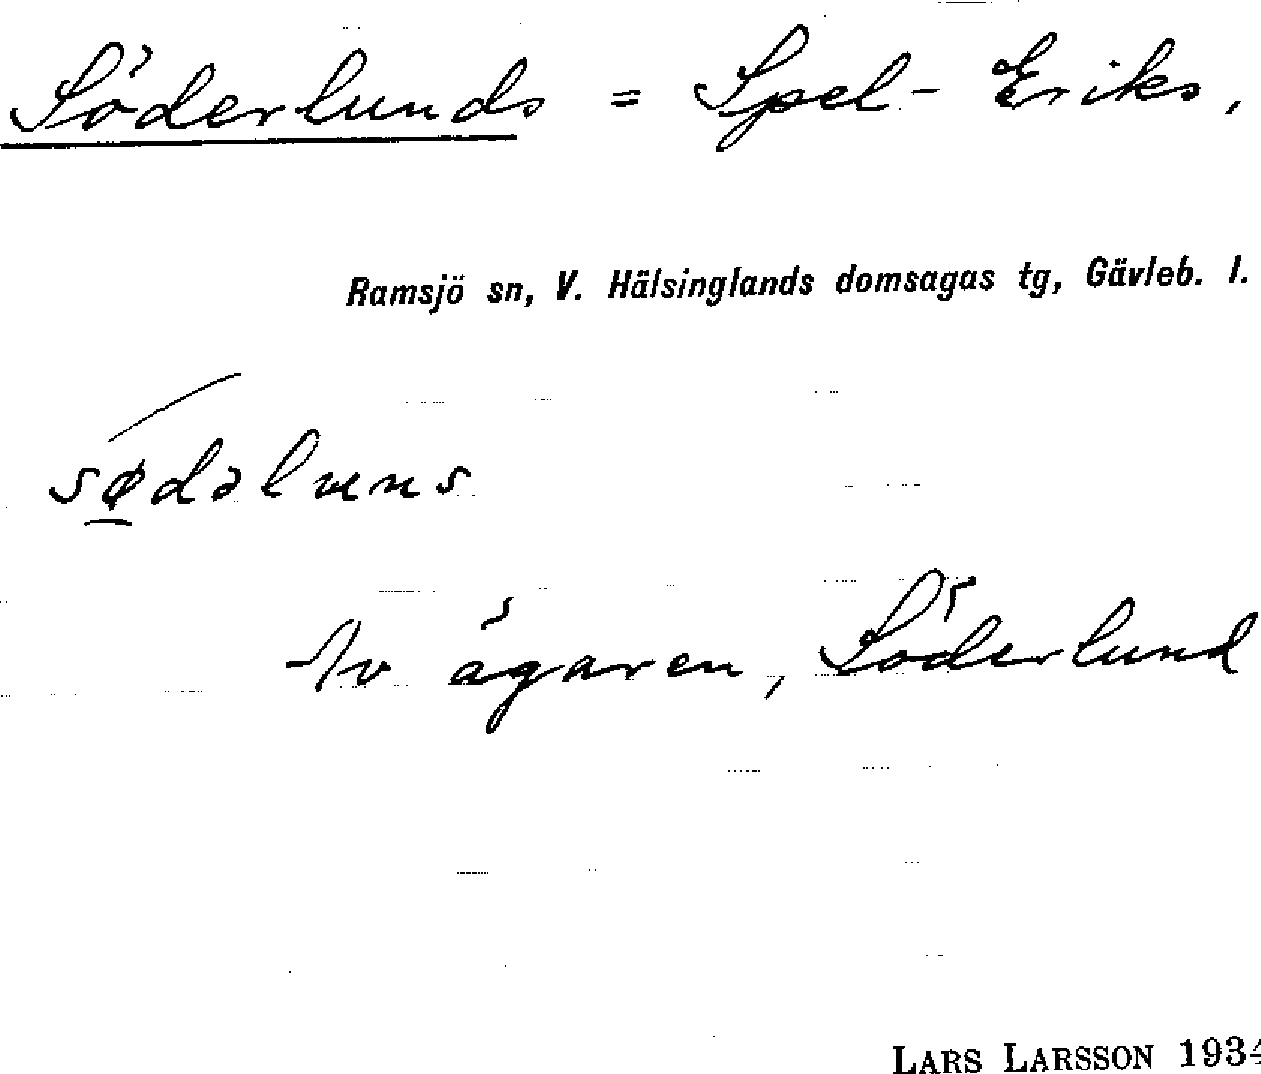 Söderlunds = Spel-Eriks,
Ramsjö sn, V. Hälsinglands domsagas tg, Gävleb. l.
sødəluns
Av ägaren, Söderlund
LARS LARSSON 1934